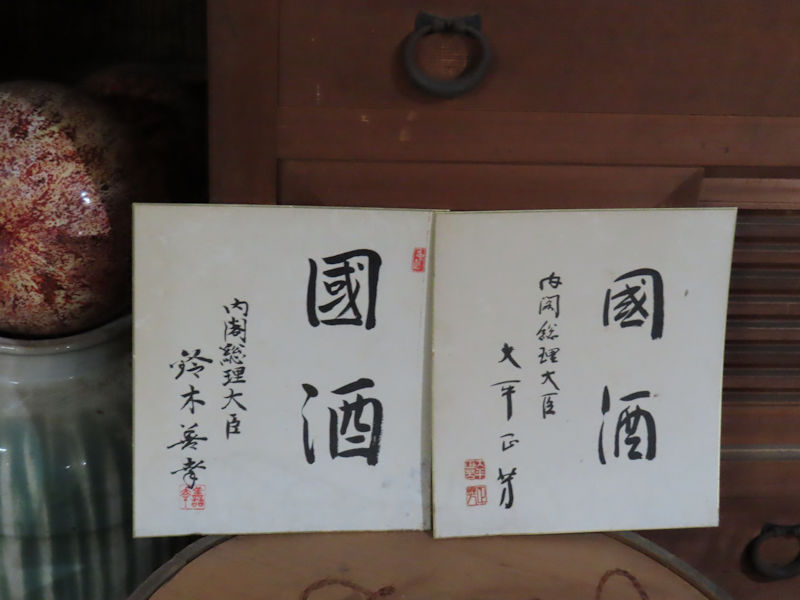 國酒
内閣総理大臣
大平正芳
國酒
内閣総理大臣
鈴木善幸